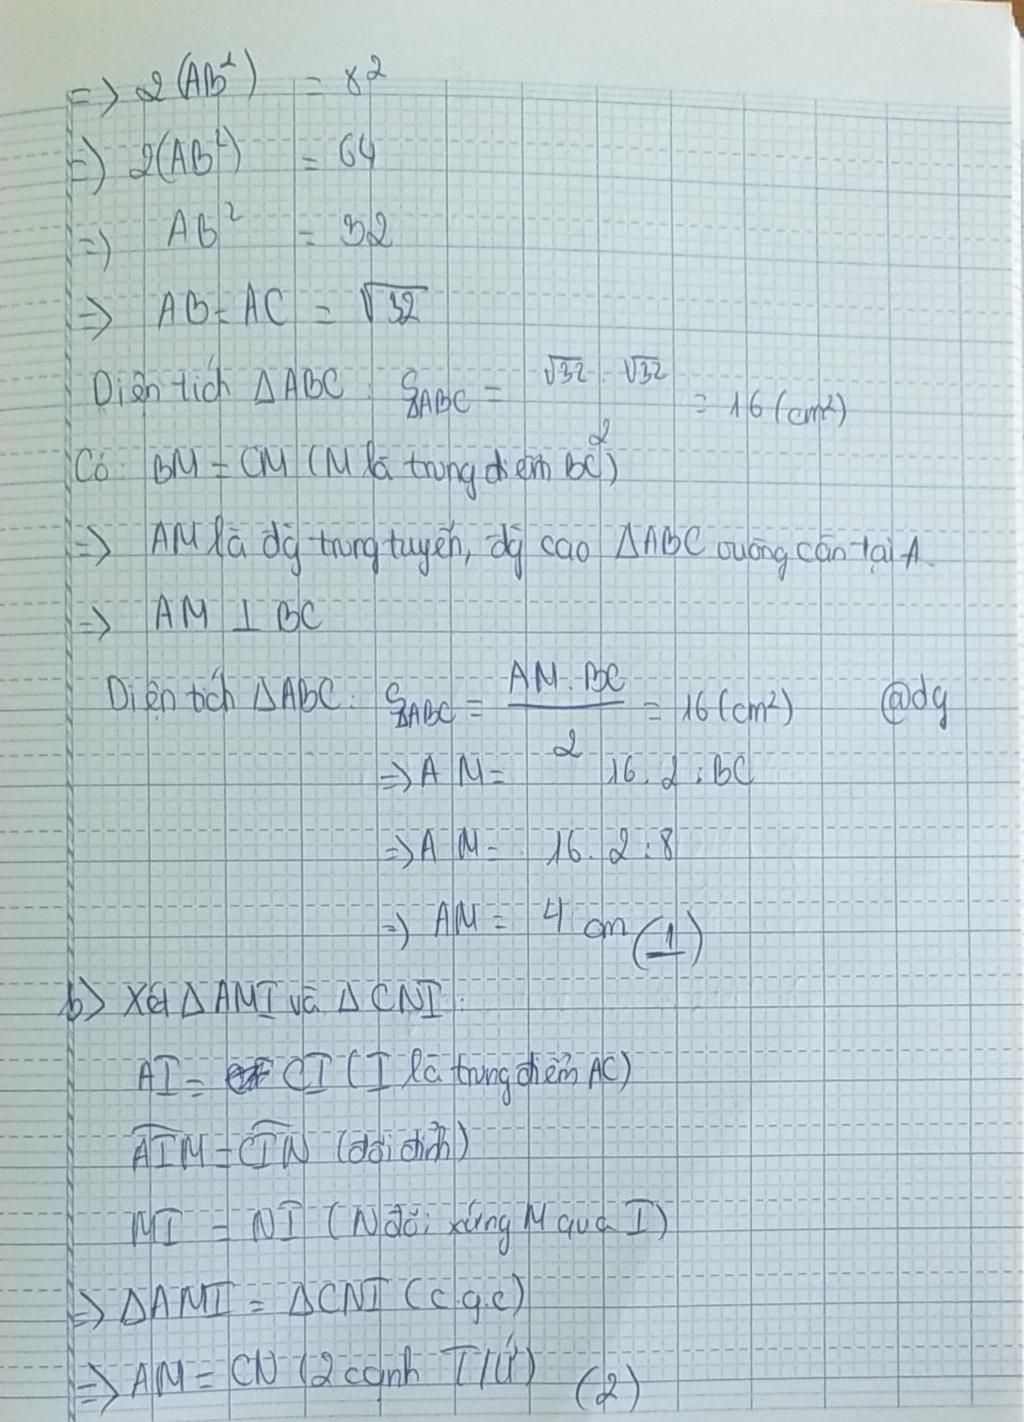 => 2(AB²) = 8²
=> 2(AB²) = 64
=> AB² = 32
=> AB = AC = √32
Diện tích ΔABC: S△ABC = √32 . √32 / 2 = 16 (cm²)
Có: BM = CM (M là trung điểm BC)
=> AM là đg trung tuyến, đg cao ΔABC vuông cân tại A.
=> AM ⊥ BC
Diện tích ΔABC: S△ABC = AM . BC / 2 = 16 (cm²) @dg
=> AM = 16 . 2 : BC
=> AM = 16 . 2 : 8
=> AM = 4 cm (1)
b> Xét ΔAMI và ΔCNI:
AI = CI (I là trung điểm AC)
AIM = CIN (đối đỉnh)
MI = NI (N đối xứng M qua I)
=> ΔAMI = ΔCNI (c.g.c)
=> AM = CN (2 cạnh T/Ứ) (2)